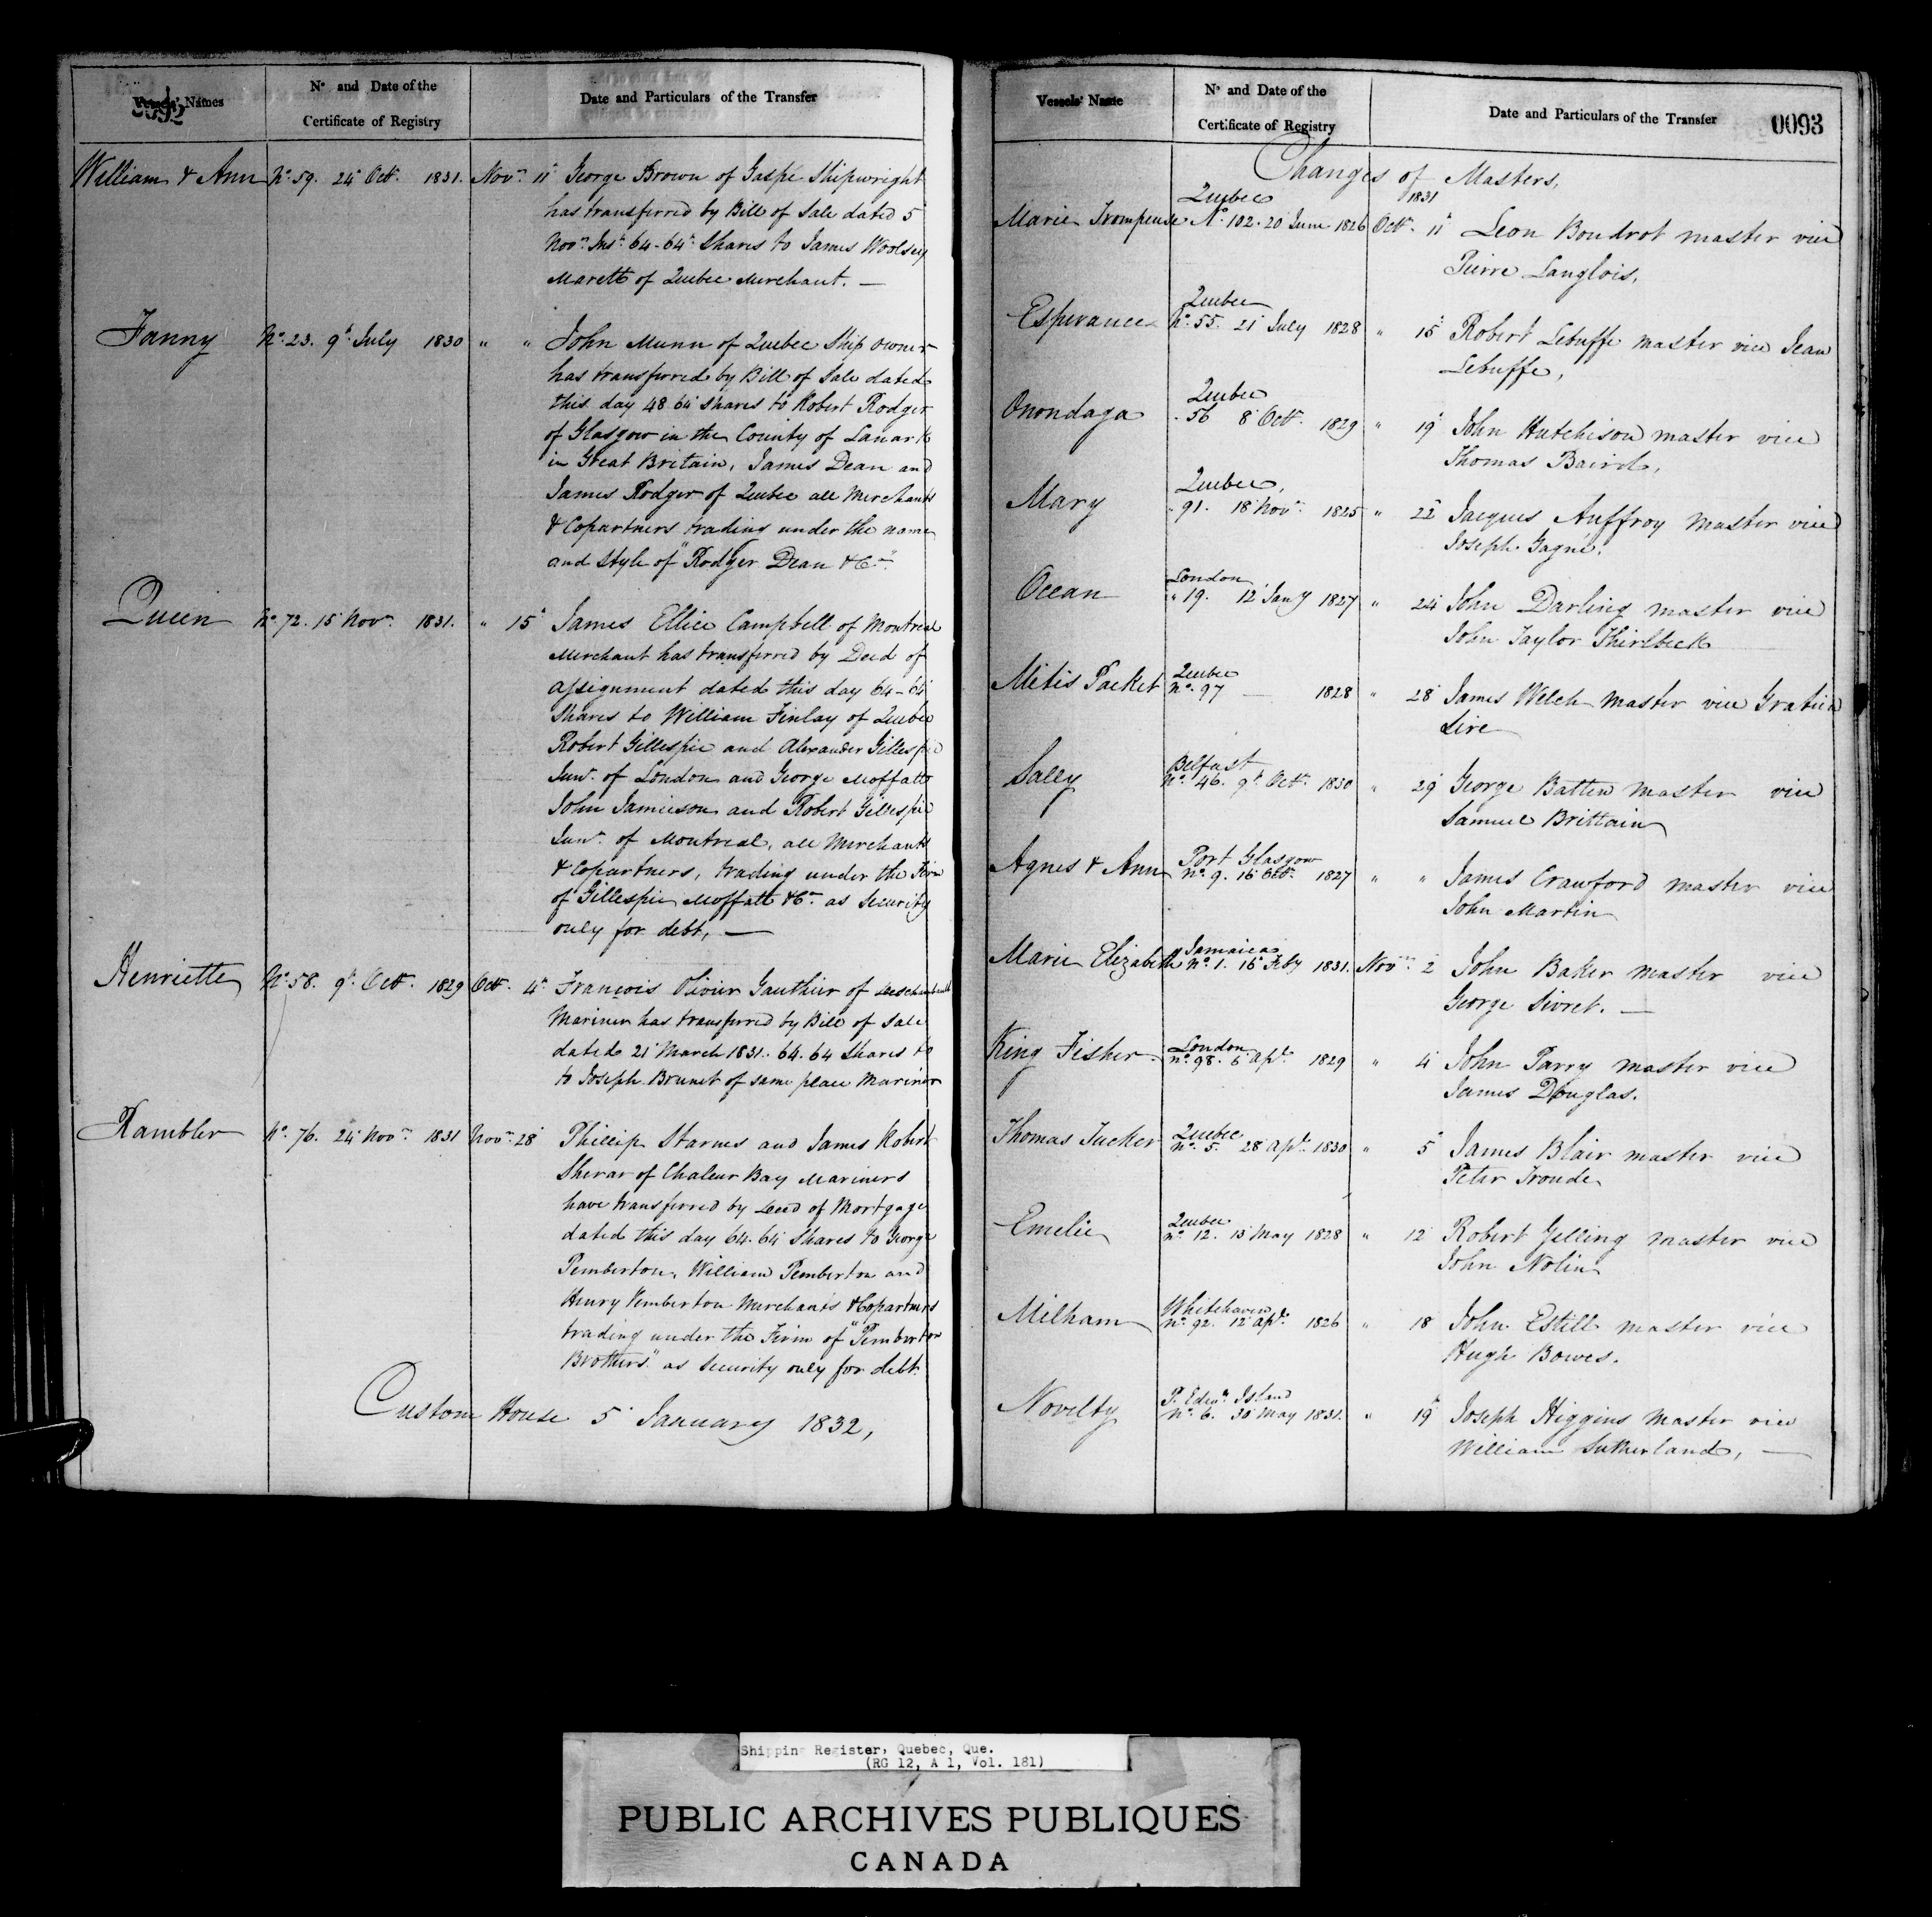 Vessels' Names
Nº and Date of the
Certificate of Registry
Date and Particulars of the Transfer
William & Ann Nº 59. 24 Octr. 1831. Novr. 11 George Brown of Gaspé Shipwright
has transferred by Bill of Sale dated 5
Novr. Inst. 64-64th Shares to James Woolsey
Marett of Quebec Merchant. —
Fanny Nº 23. 9th July 1830 " " John Munn of Quebec Ship owner
has transferred by Bill of Sale dated
this day 48.64 shares to Robert Rodger
of Glasgow in the County of Lanark
in Great Britain, James Dean and
James Rodger of Quebec all Merchants
& Copartners trading under the name
and Style of "Rodger Dean & Co."
Queen Nº 72. 15 Novr. 1831. " 15 James Ellice Campbell of Montreal
Merchant has transferred by Deed of
assignment dated this day 64-64
Shares to William Finlay of Quebec
Robert Gillespie and Alexander Gillespie
Junr. of London and George Moffatt
John Jamieson and Robert Gillespie
Junr. of Montreal, all Merchants
& Copartners, trading under the Firm
of Gillespie Moffatt & Co. as Security
only for debt, —
Henriette Nº 58. 9th Octr. 1829 Octr. 4th François Olivier Gauthier of Deschambault
Mariner has transferred by Bill of Sale
dated 21 March 1831. 64.64 Shares to
to Joseph Brunet of same place Mariner
Rambler Nº 76. 24 Novr. 1831 Novr. 28 Phillip Starnes and James Robert
Sherar of Chaleur Bay Mariners
have transferred by Deed of Mortgage
dated this day 64.64 Shares to George
Pemberton, William Pemberton and
Henry Pemberton Merchants & Copartners
trading under the Firm of "Pemberton
Brothers" as Security only for debt
Custom House 5 January 1832,
Vessels' Name
Nº and Date of the
Certificate of Registry
Date and Particulars of the Transfer
0093
Changes of Masters,
Quebec 1831
Marie Trompeuse Nº 102. 20 June 1826 Octr. 11 Leon Boudrot master vice
Pierre Langlois,
Quebec
Esperance Nº 55. 21 July 1828 " 15 Robert Lebuffe master vice Jean
Lebuffe,
Quebec
Onondaga " 56 8 Octr. 1829 " 19 John Hutchison master vice
Thomas Baird,
Quebec,
Mary " 91. 18 Novr. 1825 " 22 Jacques Auffroy master vice
Joseph Gagné.
London
Ocean " 19. 12 Jany 1827 " 24 John Darling master vice
John Taylor Thirlbeck
Quebec
Mitis Packet Nº 97 — 1828 " 28 James Welch master vice Gratien
Sire
Belfast
Sally Nº 46. 9th Octr. 1830 " 29 George Batten master vice
Samuel Brittain
Port Glasgow
Agnes & Ann Nº 9. 16 Octr. 1827 " " James Crawford master vice
John Martin
Jamaica
Marie Elizabeth Nº 1. 16 Feby 1831. Novr. 2 John Baker master vice
George Sivret. —
London
King Fisher Nº 98. 6 Apl. 1829 " 4 John Parry master vice
James Douglas.
Quebec
Thomas Tucker Nº 5. 28 Apl. 1830 " 5 James Blair master vice
Peter Troude
Quebec
Emelie Nº 12. 13 May 1828 " 12 Robert Gelling master vice
John Nolin
Whitehaven
Milham Nº 92. 12 Apl. 1826 " 18 John Estill master vice
Hugh Bowes.
P. Edwd. Island
Novelty Nº 6. 30 May 1831. " 19 Joseph Higgins master vice
William Sutherland, —
Shipping Register, Quebec, Que.
(RG 12, A 1, Vol. 181)
PUBLIC ARCHIVES PUBLIQUES
CANADA